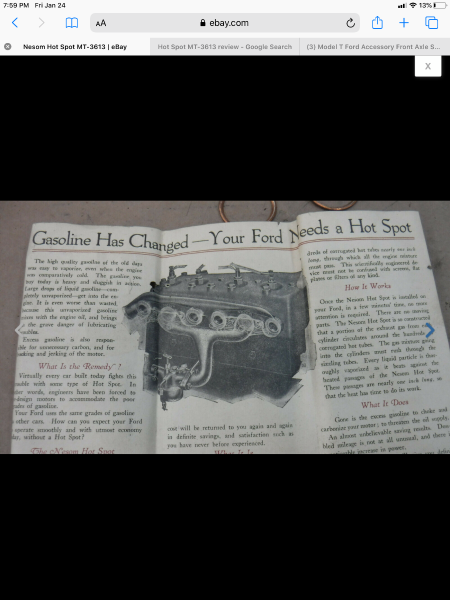 7:59 PM Fri Jan 24
13%
AA
ebay.com
Nesom Hot Spot MT-3613 | eBay
Hot Spot MT-3613 review - Google Search
(3) Model T Ford Accessory Front Axle S...
X
Gasoline Has Changed—Your Ford Needs a Hot Spot
The high quality gasoline of the old days
was easy to vaporize, even when the engine
was comparatively cold. The gasoline you
buy today is heavy and sluggish in action.
Large drops of liquid gasoline—com-
pletely unvaporized—get into the en-
gine. It is even worse than wasted,
because this unvaporized gasoline
mixes with the engine oil, and brings
the grave danger of lubricating
Excess gasoline is also respon-
sible for unnecessary carbon, and for
and jerking of the motor.
What Is the Remedy?
Virtually every car built today fights this
with some type of Hot Spot. In
other words, engineers have been forced to
re-design motors to accommodate the poor
of gasoline.
Your Ford uses the same grades of gasoline
other cars. How can you expect your Ford
operate smoothly and with utmost economy
without a Hot Spot?
The Nesom Hot Spot
cost will be returned to you again and again
in definite savings, and satisfaction such as
you have never before experienced.
What It Is
of corrugated hot tubes nearly
through which all the engine mixture
must pass. This scientifically engineered de-
vice must not be confused with screens, flat
plates or filters of any kind.
How it Works
Once the Nesom Hot Spot is installed on
your Ford, in a few minutes' time, no more
attention is required. There are no moving
parts. The Nesom Hot Spot is so constructed
that a portion of the exhaust gas from
cylinder circulates around the hundreds
corrugated hot tubes. The gas mixture going
into the cylinders must rush through the
sizzling tubes. Every liquid particle is thor-
oughly vaporized as it beats against the
heated passages of the Nesom Hot Spot.
These passages are nearly one inch long, so
that the heat has time to do its work.
What It Does
Gone is the excess gasoline to choke and
carbonize your motor; to threaten the oil supply.
An almost unbelievable saving results.
mileage is not at all unusual, and there
increase in power.